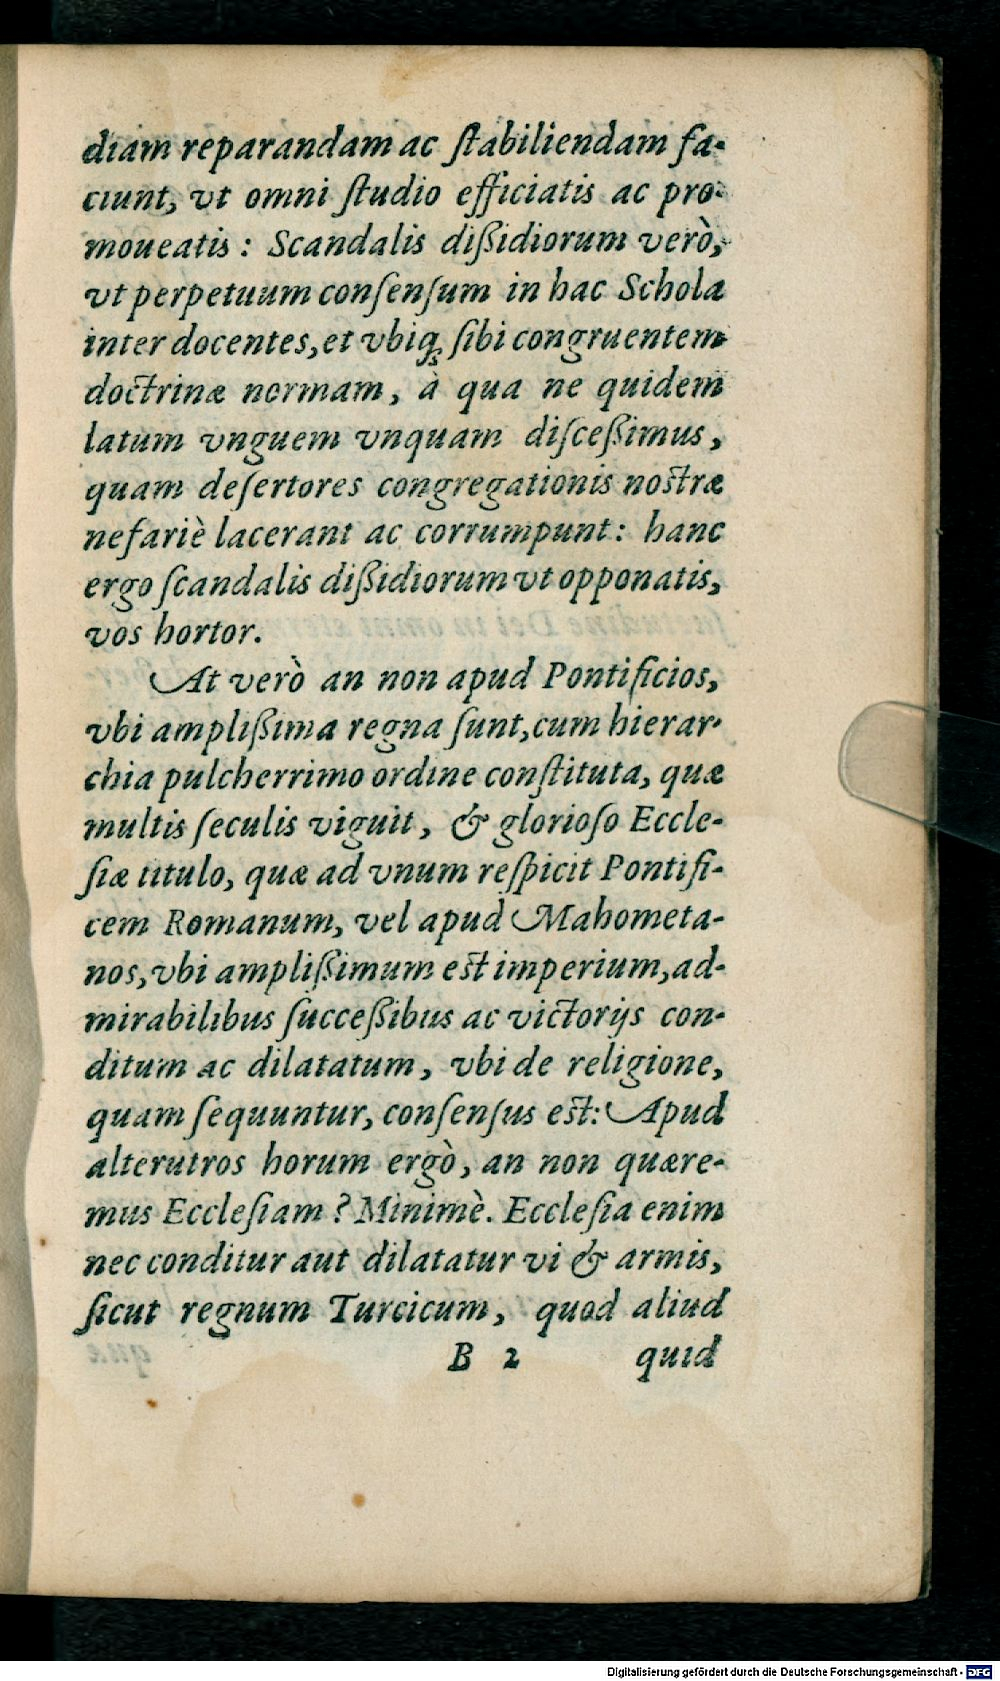 diam reparandam ac ſtabiliendam fa-
ciunt, vt omni ſtudio efficiatis ac pro-
moueatis: Scandalis dißidiorum verò,
vt perpetuum conſenſum in hac Schola
inter docentes, et vbiq; ſibi congruentem
doctrinæ normam, à qua ne quidem
latum vnguem vnquam diſceßimus,
quam deſertores congregationis noſtræ
nefariè lacerant ac corrumpunt: hanc
ergo ſcandalis dißidiorum vt opponatis,
vos hortor.
At verò an non apud Pontificios,
vbi amplißima regna ſunt, cum hierar-
chia pulcherrimo ordine conſtituta, quæ
multis ſeculis viguit, & glorioſo Eccle-
ſiæ titulo, quæ ad vnum reſpicit Pontifi-
cem Romanum, vel apud Mahometa-
nos, vbi amplißimum eſt imperium, ad-
mirabilibus ſucceßibus ac victorijs con-
ditum ac dilatatum, vbi de religione,
quam ſequuntur, conſenſus eſt: Apud
alterutros horum ergò, an non quære-
mus Eccleſiam? Minimè. Eccleſia enim
nec conditur aut dilatatur vi & armis,
ſicut regnum Turcicum, quod aliud
B 2 quid
Digitalisierung gefördert durch die Deutsche Forschungsgemeinschaft - DFG